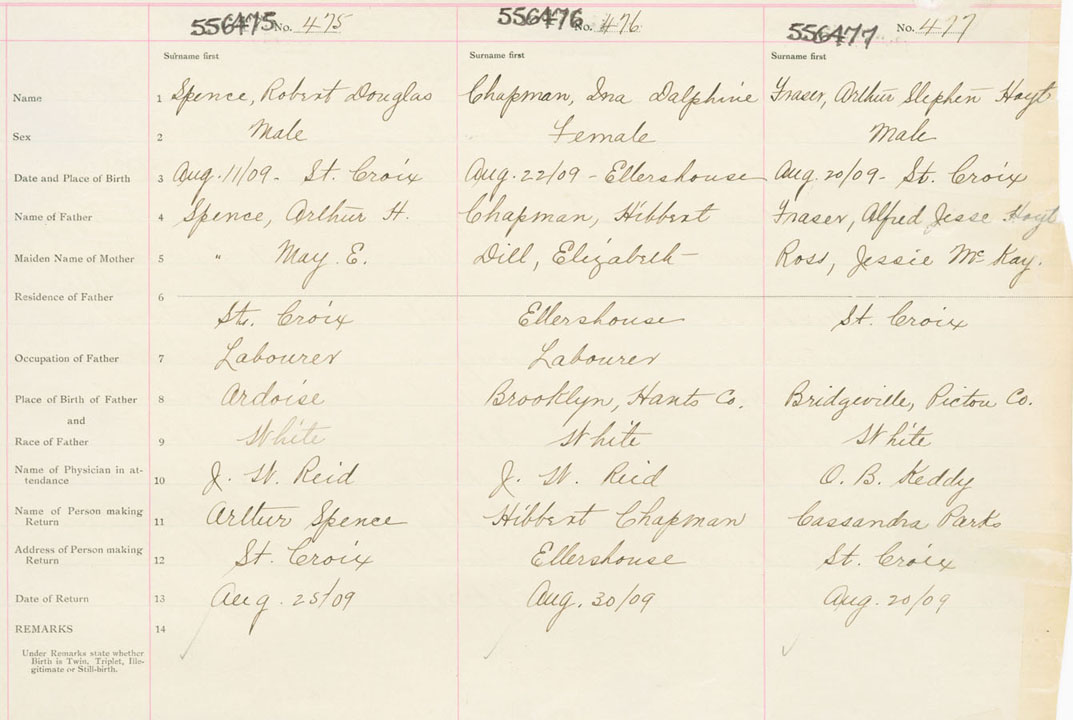 556475 No. 475 556476 No. 476 556477 No. 477
Surname first Surname first Surname first
Name 1 Spence, Robert Douglas Chapman, Ina Dalphine Fraser, Arthur Stephen Hoyt
Sex 2 Male Female Male
Date and Place of Birth 3 Aug. 11/09 - St. Croix Aug. 22/09 - Ellershouse Aug. 20/09 - St. Croix
Name of Father 4 Spence, Arthur H. Chapman, Hibbert Fraser, Alfred Jesse Hoyt
Maiden Name of Mother 5 " May E. Dill, Elizabeth Ross, Jessie McKay.
Residence of Father 6
St. Croix Ellershouse St. Croix
Occupation of Father 7 Labourer Labourer
Place of Birth of Father 8 Ardoise Brooklyn, Hants Co. Bridgeville, Pictou Co.
and
Race of Father 9 White White White
Name of Physician in at-
tendance 10 J. W. Reid J. W. Reid O. B. Keddy
Name of Person making
Return 11 Arthur Spence Hibbert Chapman Cassandra Parks
Address of Person making
Return 12 St. Croix Ellershouse St. Croix
Date of Return 13 Aug. 25/09 Aug. 30/09 Aug. 20/09
REMARKS 14
Under Remarks state whether
Birth is Twin, Triplet, Ille-
gitimate or Still-birth.